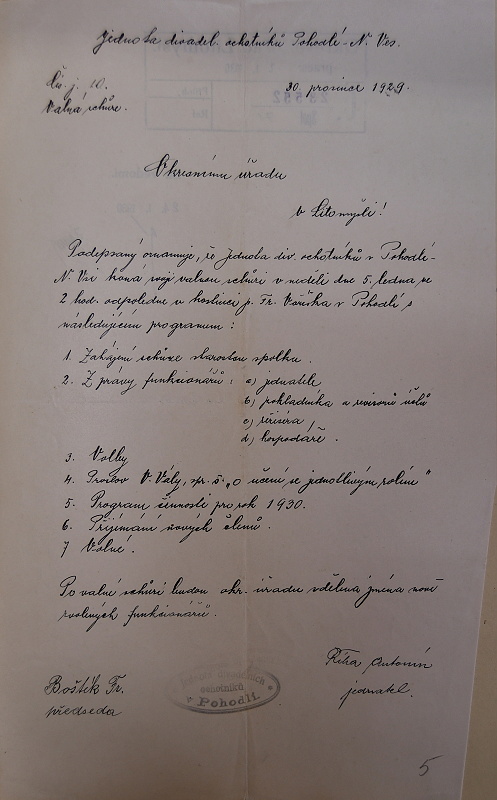 Jednota divadel. ochotníků Pohodlí - N. Ves.
Čís. j. 10.
30. prosince 1929.
Valná schůze.
Okresnímu úřadu
v Litomyšli!
Podepsaný oznamuje, že Jednota div. ochotníků v Pohodlí-
N. Vsi koná svoji valnou schůzi v neděli dne 5. ledna ve
2 hod. odpoledne v hostinci p. Fr. Voříška v Pohodlí s
následujícím programem :
1. Zahájení schůze starostou spolku.
2. Zprávy funkcionářů : a) jednatele
b) pokladníka a revisorů účtů
c) režiséra
d) hospodáře.
3. Volby
4. Proslov V. Vály, spr. š. „O učení se jednotlivým rolím"
5. Program činnosti pro rok 1930.
6. Přijímání nových členů.
7 Volné.
Po valné schůzi budou okr. úřadu sdělena jména nově
zvolených funkcionářů.
Říha Antonín
jednatel.
Boštík Fr.
předseda
ochotníků
Pohodlí.
5